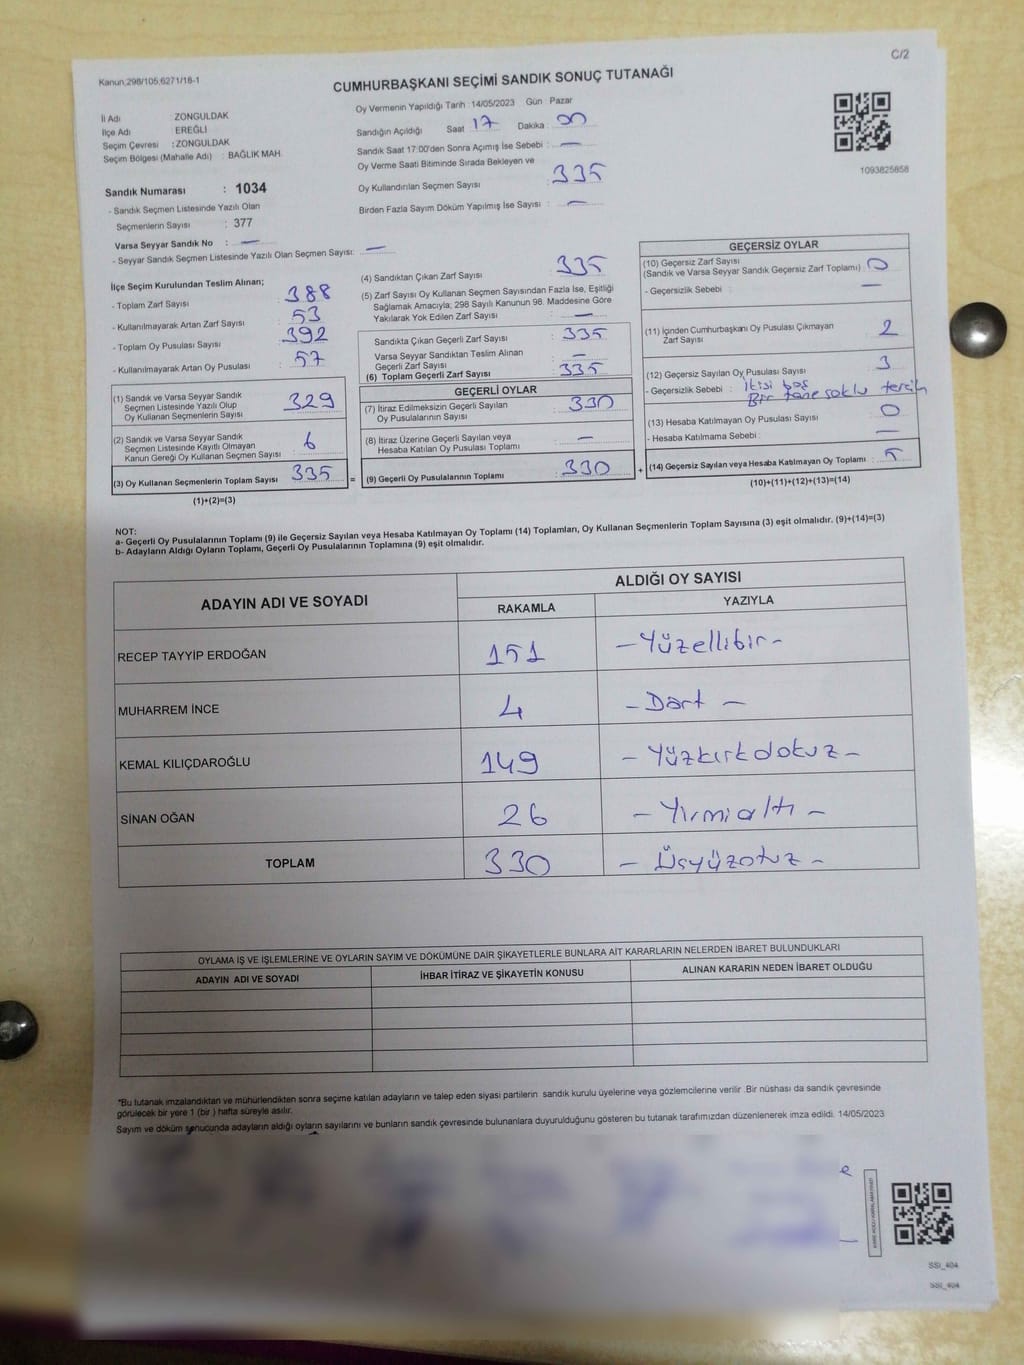 C/2
Kanun 298/105,6271/18-1
CUMHURBAŞKANI SEÇİMİ SANDIK SONUÇ TUTANAĞI
İl Adı : ZONGULDAK
İlçe Adı : EREĞLİ
Seçim Çevresi : ZONGULDAK
Seçim Bölgesi (Mahalle Adı) : BAĞLIK MAH.
Sandık Numarası : 1034
- Sandık Seçmen Listesinde Yazılı Olan
Seçmenlerin Sayısı : 377
Varsa Seyyar Sandık No : —
- Seyyar Sandık Seçmen Listesinde Yazılı Olan Seçmen Sayısı: —
Oy Vermenin Yapıldığı Tarih : 14/05/2023 Gün : Pazar
Sandığın Açıldığı Saat : 17 Dakika : 00
Sandık Saat 17:00'den Sonra Açılmış İse Sebebi : —
Oy Verme Saati Bitiminde Sırada Bekleyen ve
Oy Kullandırılan Seçmen Sayısı : 335
Birden Fazla Sayım Döküm Yapılmış İse Sayısı : —
1093825858
İlçe Seçim Kurulundan Teslim Alınan;
- Toplam Zarf Sayısı : 388
- Kullanılmayarak Artan Zarf Sayısı : 53
- Toplam Oy Pusulası Sayısı : 392
- Kullanılmayarak Artan Oy Pusulası : 57
(1) Sandık ve Varsa Seyyar Sandık
Seçmen Listesinde Yazılı Olup
Oy Kullanan Seçmenlerin Sayısı : 329
(2) Sandık ve Varsa Seyyar Sandık
Seçmen Listesinde Kayıtlı Olmayan
Kanun Gereği Oy Kullanan Seçmen Sayısı : 6
(3) Oy Kullanan Seçmenlerin Toplam Sayısı : 335 =
(1)+(2)=(3)
(4) Sandıktan Çıkan Zarf Sayısı : 335
(5) Zarf Sayısı Oy Kullanan Seçmen Sayısından Fazla İse, Eşitliği
Sağlamak Amacıyla; 298 Sayılı Kanunun 98. Maddesine Göre
Yakılarak Yok Edilen Zarf Sayısı : —
Sandıkta Çıkan Geçerli Zarf Sayısı : 335
Varsa Seyyar Sandıktan Teslim Alınan
Geçerli Zarf Sayısı : —
(6) Toplam Geçerli Zarf Sayısı : 335
GEÇERLİ OYLAR
(7) İtiraz Edilmeksizin Geçerli Sayılan
Oy Pusulalarının Sayısı : 330
(8) İtiraz Üzerine Geçerli Sayılan veya
Hesaba Katılan Oy Pusulası Toplamı : —
(9) Geçerli Oy Pusulalarının Toplamı : 330 +
GEÇERSİZ OYLAR
(10) Geçersiz Zarf Sayısı
(Sandık ve Varsa Seyyar Sandık Geçersiz Zarf Toplamı) : 0
- Geçersizlik Sebebi : —
(11) İçinden Cumhurbaşkanı Oy Pusulası Çıkmayan
Zarf Sayısı : 2
(12) Geçersiz Sayılan Oy Pusulası Sayısı : 3
- Geçersizlik Sebebi : İkisi boş
Bir tane çoklu tercih
(13) Hesaba Katılmayan Oy Pusulası Sayısı : 0
- Hesaba Katılmama Sebebi : —
(14) Geçersiz Sayılan veya Hesaba Katılmayan Oy Toplamı : 5
(10)+(11)+(12)+(13)=(14)
NOT:
a- Geçerli Oy Pusulalarının Toplamı (9) ile Geçersiz Sayılan veya Hesaba Katılmayan Oy Toplamı (14) Toplamları, Oy Kullanan Seçmenlerin Toplam Sayısına (3) eşit olmalıdır. (9)+(14)=(3)
b- Adayların Aldığı Oyların Toplamı, Geçerli Oy Pusulalarının Toplamına (9) eşit olmalıdır.
ADAYIN ADI VE SOYADI ALDIĞI OY SAYISI
RAKAMLA YAZIYLA
RECEP TAYYİP ERDOĞAN 151 -Yüzellibir-
MUHARREM İNCE 4 -Dört-
KEMAL KILIÇDAROĞLU 149 -Yüzkırkdokuz-
SİNAN OĞAN 26 -Yirmialtı-
TOPLAM 330 -Üçyüzotuz-
OYLAMA İŞ VE İŞLEMLERİNE VE OYLARIN SAYIM VE DÖKÜMÜNE DAİR ŞİKAYETLERLE BUNLARA AİT KARARLARIN NELERDEN İBARET BULUNDUKLARI
ADAYIN ADI VE SOYADI İHBAR İTİRAZ VE ŞİKAYETİN KONUSU ALINAN KARARIN NEDEN İBARET OLDUĞU
*Bu tutanak imzalandıktan ve mühürlendikten sonra seçime katılan adayların ve talep eden siyasi partilerin sandık kurulu üyelerine veya gözlemcilerine verilir. Bir nüshası da sandık çevresinde
görülecek bir yere 1 (bir ) hafta süreyle asılır.
Sayım ve döküm sonucunda adayların aldığı oyların sayılarını ve bunların sandık çevresinde bulunanlara duyurulduğunu gösteren bu tutanak tarafımızdan düzenlenerek imza edildi. 14/05/2023
SSI_404
SSI_404